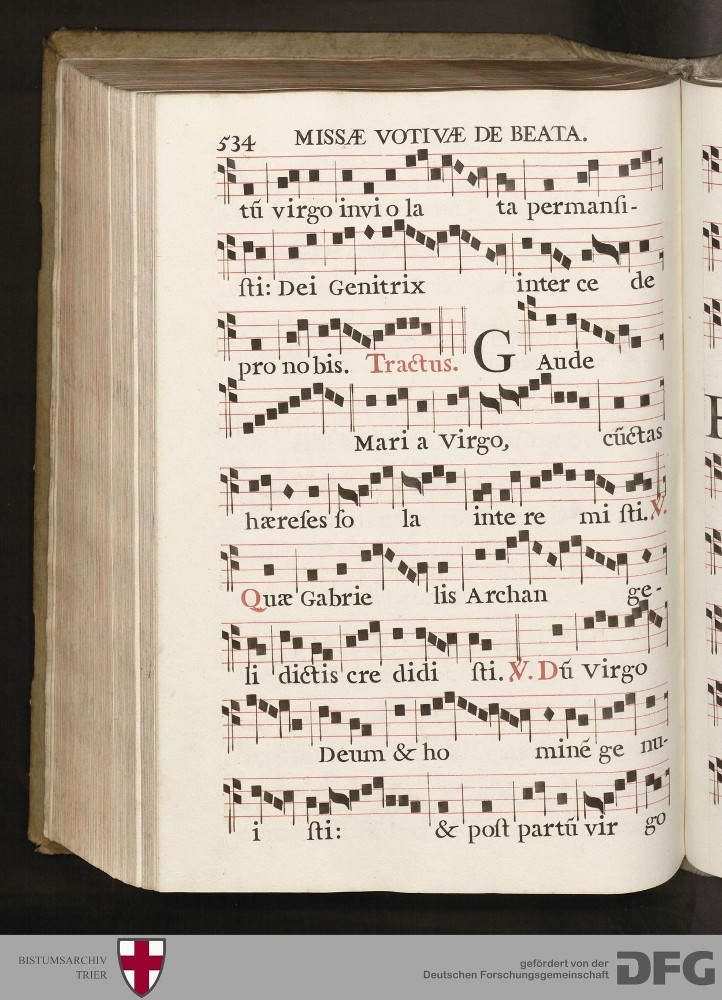 534 MISSÆ VOTIVÆ DE BEATA.
tū virgo invi o la ta permanſi-
ſti: Dei Genitrix inter ce de
pro no bis. Tractus. G Aude
Mari a Virgo, cūctas
hæreſes ſo la inte re mi ſti. ℣.
Quæ Gabrie lis Archan ge-
li dictis cre didi ſti. ℣. Dū Virgo
Deum & ho minē ge nu-
i ſti: & poſt partū vir go
BISTUMSARCHIV
TRIER
gefördert von der
Deutschen Forschungsgemeinschaft
DFG